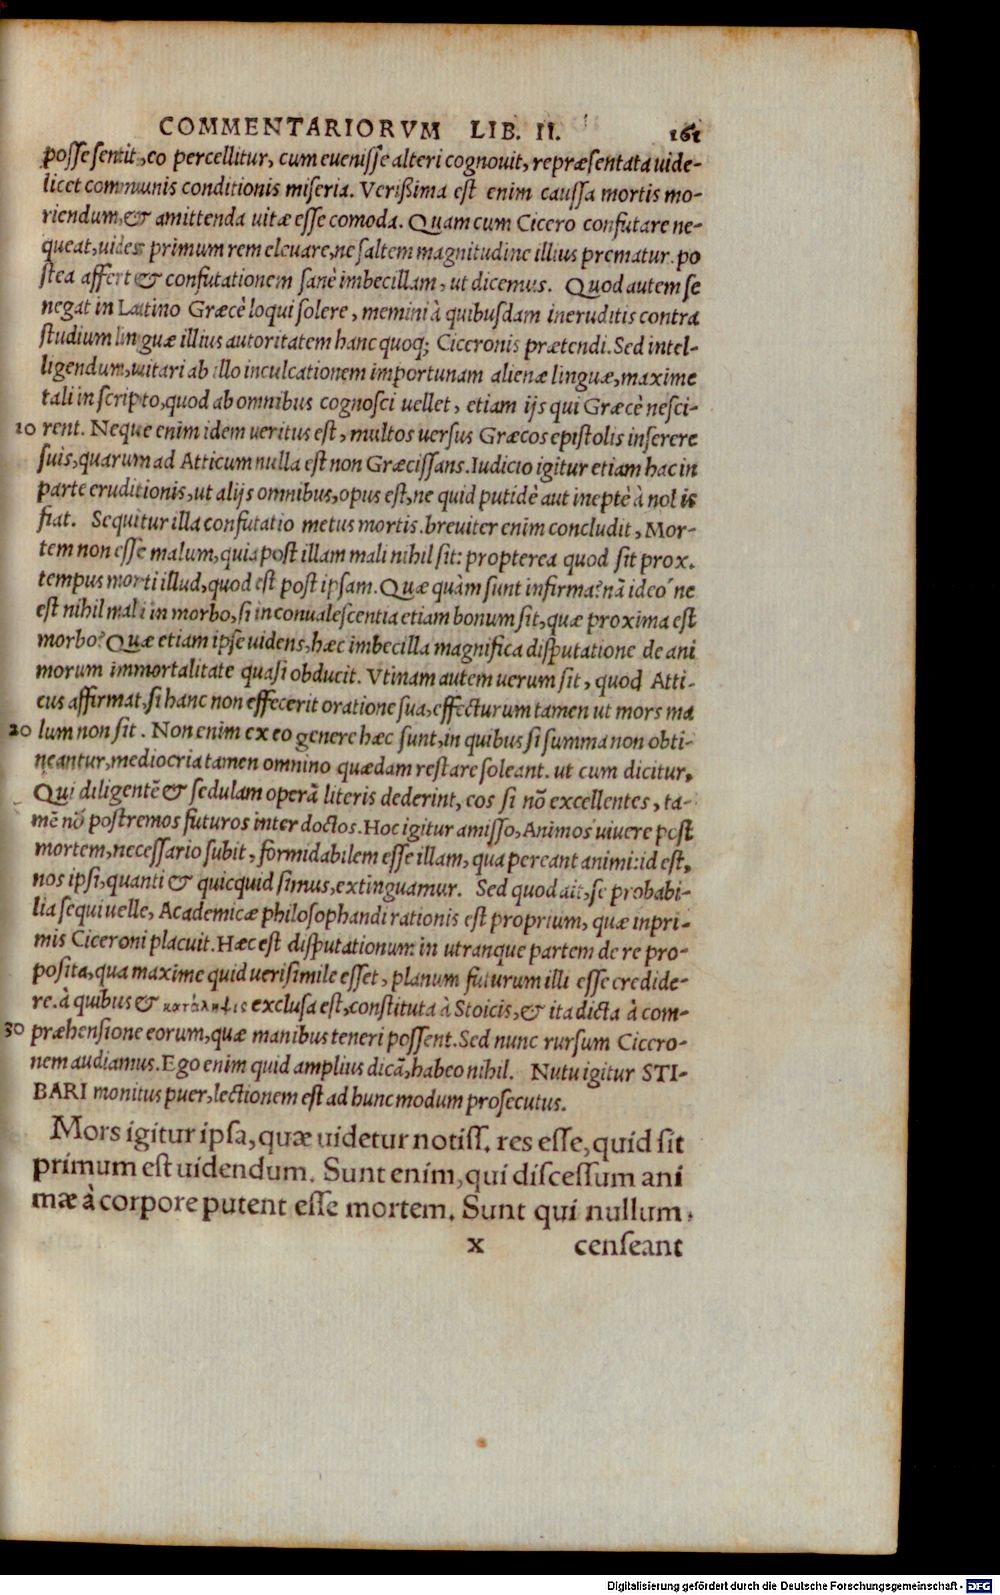 COMMENTARIORVM LIB. II. 161
posse sentit, eo percellitur, cum euenisse alteri cognouit, repræsentata uide-
licet communis conditionis miseria. Verißima est enim caussa mortis mo-
riendum, & amittenda uitæ esse comoda. Quam cum Cicero confutare ne-
queat, uides primum rem eleuare, ne saltem magnitudine illius prematur. po
stea affert & confutationem sanè imbecillam, ut dicemus. Quod autem se
negat in Latino Græcè loqui solere, memini à quibusdam ineruditis contra
studium linguæ illius autoritatem hanc quoq; Ciceronis prætendi. Sed intel-
ligendum, uitari ab illo inculcationem importunam alienæ linguæ, maxime
tali in scripto, quod ab omnibus cognosci uellet, etiam ijs qui Græcè nesci-
10 rent. Neque enim idem ueritus est, multos uersus Græcos epistolis inserere
suis, quarum ad Atticum nulla est non Græcissans. Iudicio igitur etiam hac in
parte eruditionis, ut alijs omnibus, opus est, ne quid putidè aut ineptè à nobis
fiat. Sequitur illa confutatio metus mortis. breuiter enim concludit, Mor-
tem non esse malum, quia post illam mali nihil sit: propterea quod sit prox.
tempus morti illud, quod est post ipsam. Quæ quàm sunt infirma? nā ideo ne
est nihil mali in morbo, si in conualescentia etiam bonum sit, quæ proxima est
morbo? Quæ etiam ipse uidens, hæc imbecilla magnifica disputatione de ani
morum immortalitate quasi obducit. Vtinam autem uerum sit, quod Atti-
cus affirmat, si hanc non effecerit oratione sua, effecturum tamen ut mors ma
20 lum non sit. Non enim ex eo genere hæc sunt, in quibus si summa non obti-
neantur, mediocria tamen omnino quædam restare soleant. ut cum dicitur,
Qui diligentē & sedulam operā literis dederint, eos si nō excellentes, ta-
mē nō postremos futuros inter doctos. Hoc igitur amisso, Animos uiuere post
mortem, necessario subit, formidabilem esse illam, qua pereant animi: id est,
nos ipsi, quanti & quicquid simus, extinguamur. Sed quod ait, se probabi-
lia sequi uelle, Academicæ philosophandi rationis est proprium, quæ inpri-
mis Ciceroni placuit. Hæc est disputationum in utranque partem de re pro-
posita, qua maxime quid uerisimile esset, planum futurum illi esse credide-
re. à quibus & κατάληψις exclusa est, constituta à Stoicis, & ita dicta à com-
30 præhensione eorum, quæ manibus teneri possent. Sed nunc rursum Cicero-
nem audiamus. Ego enim quid amplius dicā, habeo nihil. Nutu igitur STI-
BARI monitus puer, lectionem est ad hunc modum prosecutus.
Mors igitur ipsa, quæ uidetur notiss. res esse, quid sit
primum est uidendum. Sunt enim, qui discessum ani
mæ à corpore putent esse mortem. Sunt qui nullum
x censeant
Digitalisierung gefördert durch die Deutsche Forschungsgemeinschaft - DFG